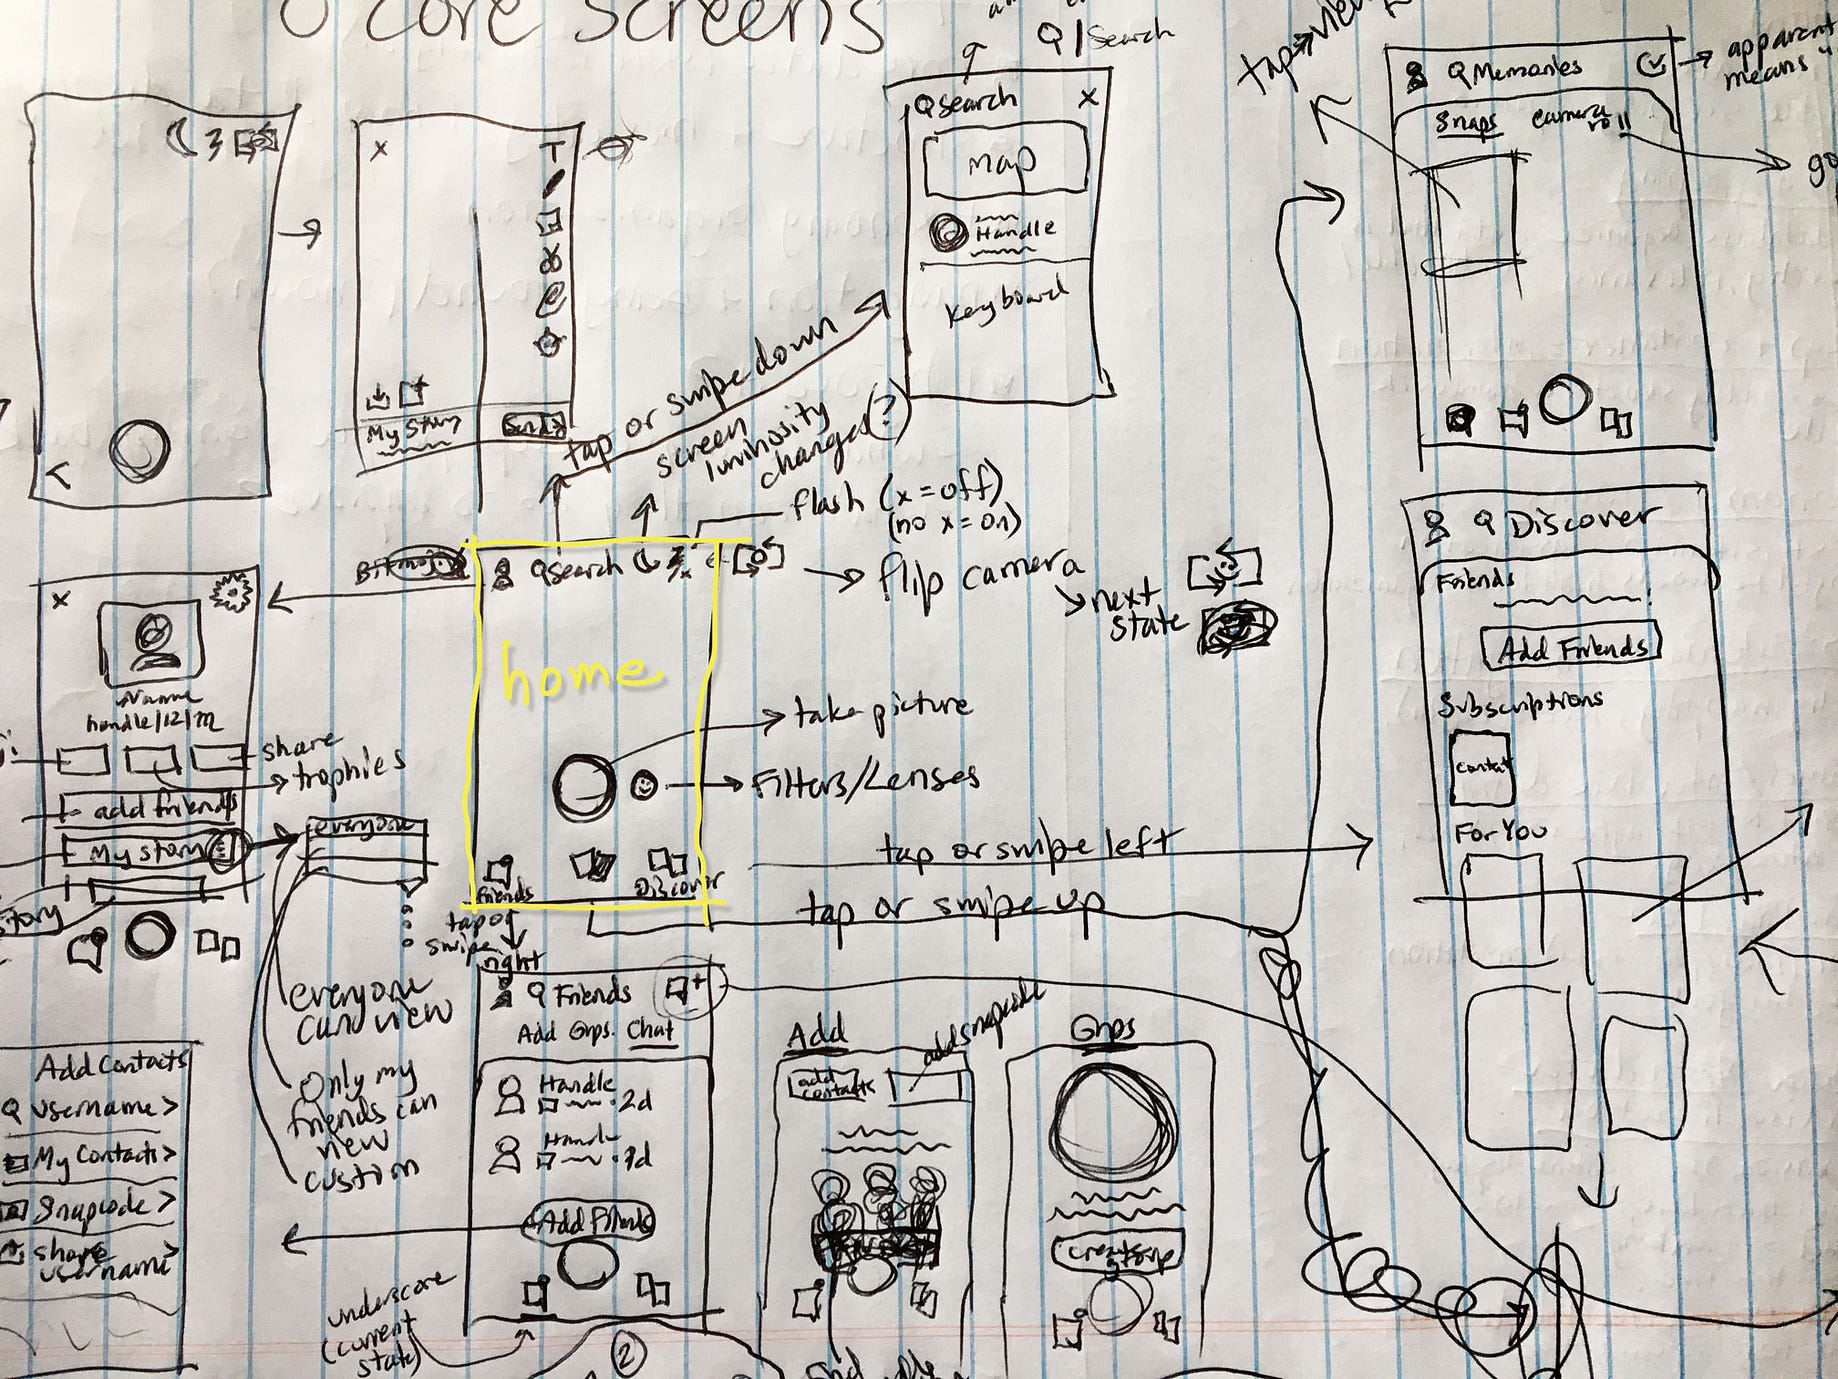 core screens
Q | Search
Q Search X
map
Handle
Keyboard
X
T
My Story
Send
tap or swipe down
screen
luminosity
changed (?)
flash (x = off)
(no x = on)
flip camera
next
state
Bitmoji
Q Search
home
take picture
Filters/Lenses
Friends
Discover
tap or swipe left
tap or swipe up
tap or
swipe
right
X
Name
handle/12/m
share
trophies
+ add friends
My story
everyone
everyone
can view
Only my
friends can
view
custom
story
Add Contacts
Q username >
My Contacts >
Snapcode >
share
username >
underscore
(current
state)
Q Friends
Add Grps. Chat
Handle
2d
Handle
Add Friends
2
Add
add
contacts
add snapcode
Grps
tap → view
Q Memories
Snaps
Camera
roll
apparent
means
go
Q Discover
Friends
Add Friends
Subscriptions
For You